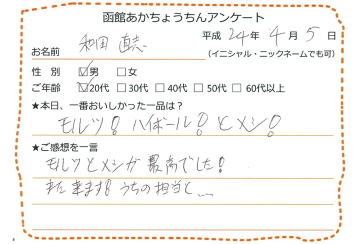 函館あかちょうちんアンケート
平成 24 年 4 月 5 日
お名前 和田 直志
(イニシャル・ニックネームでも可)
性 別 ☑男 □女
ご年齢 ☑20代 □30代 □40代 □50代 □60代以上
★本日、一番おいしかった一品は?
モルツ! ハイボール! とメシ!
★ご感想を一言
モルツとメシが最高でした!
また来ます! うちの担当と…